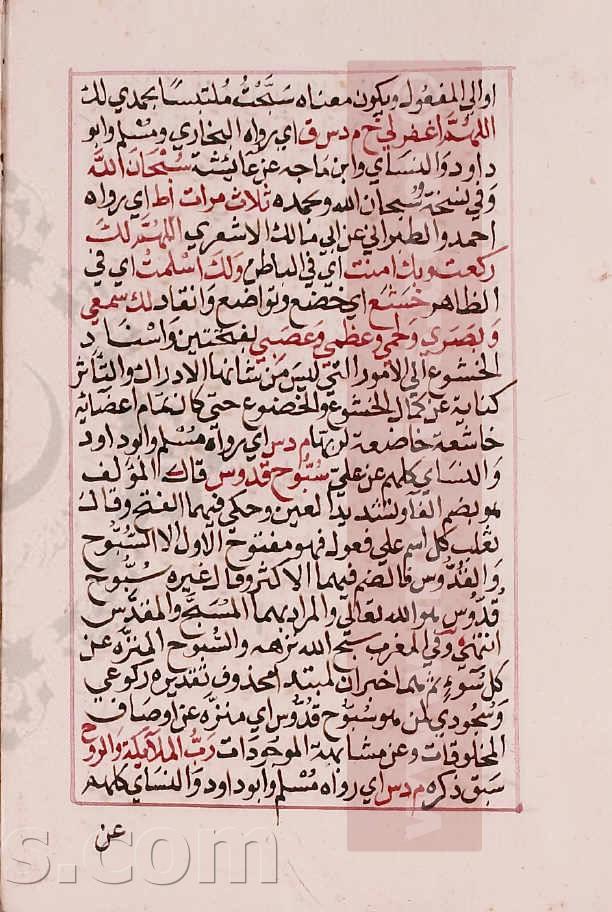 او الى المفعول ويكون معناه سَبَّحْتُ مُلتبسًا بحمدي لك
اللهمَّ اغفر لي خ م د س ق اي رواه البخاري ومُسْلم وابو
داود والنساي وابن ماجه عن عائشة سُبْحَانَ اللَّه
وفي نسخة سُبحان الله وبحمده ثلاث مرات اط اي رواه
احمد والطبراني عن ابي مالك الاشعري اللهمَّ لك
ركعت وبك امنت اي في الباطن ولك اسْلمتُ اي في
الظاهر خشع اي خضع وتواضع وانقاد لك سمعي
وبَصَري ولحمي وعظمي وعَصَبي بفتحتين واسْناد
الخشوع الى الأمور التي ليسَ من شانها الادراك والتَّأثر
كناية عن كمال الخشوع والخضوع حتى كان تمام اعضائه
خاشعة خاضعة لربها م د س اي رواه مُسْلم وابو داود
والنساي كلهم عن علي سُبُّوح قدُّوس قال المؤلف
هو بضم الفاء وتشديد العين وحكي فيهما الفتح وقال
ثعلب كل اسم على فعول فهو مفتوح الاول الا السُّبُّوح
والقُدُّوس فالضم فيهما الاكثر وقال غيره سبُّوح
قُدُّوس هو الله تعالى والمراد بهما المسَبَّح والمقدَّس
انتهى وفي المغرب سبح الله نزهه والسُّبوح المنزَّه عن
كل سُوء ثم هما خبران لمبتدا محذوف تقديره ركوعي
وسُجودي لمن هو سُبُّوح قدُّوس اي منزَّه عن اوصاف
المخلوقات وعن مشابهة الموجودات ربُّ الملائكة والروح
سَبق ذكره م د س اي رواه مُسْلم وابو داود والنساي كلهم
عن
s.com